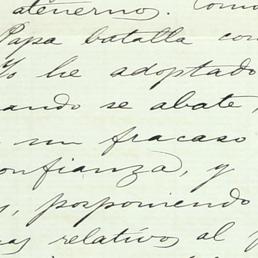 atenerno. Como
Papa batalla con
Yo he adoptado
ando se abate
un fracaso
onfianza, y
s, posponiendo
as relativos al p